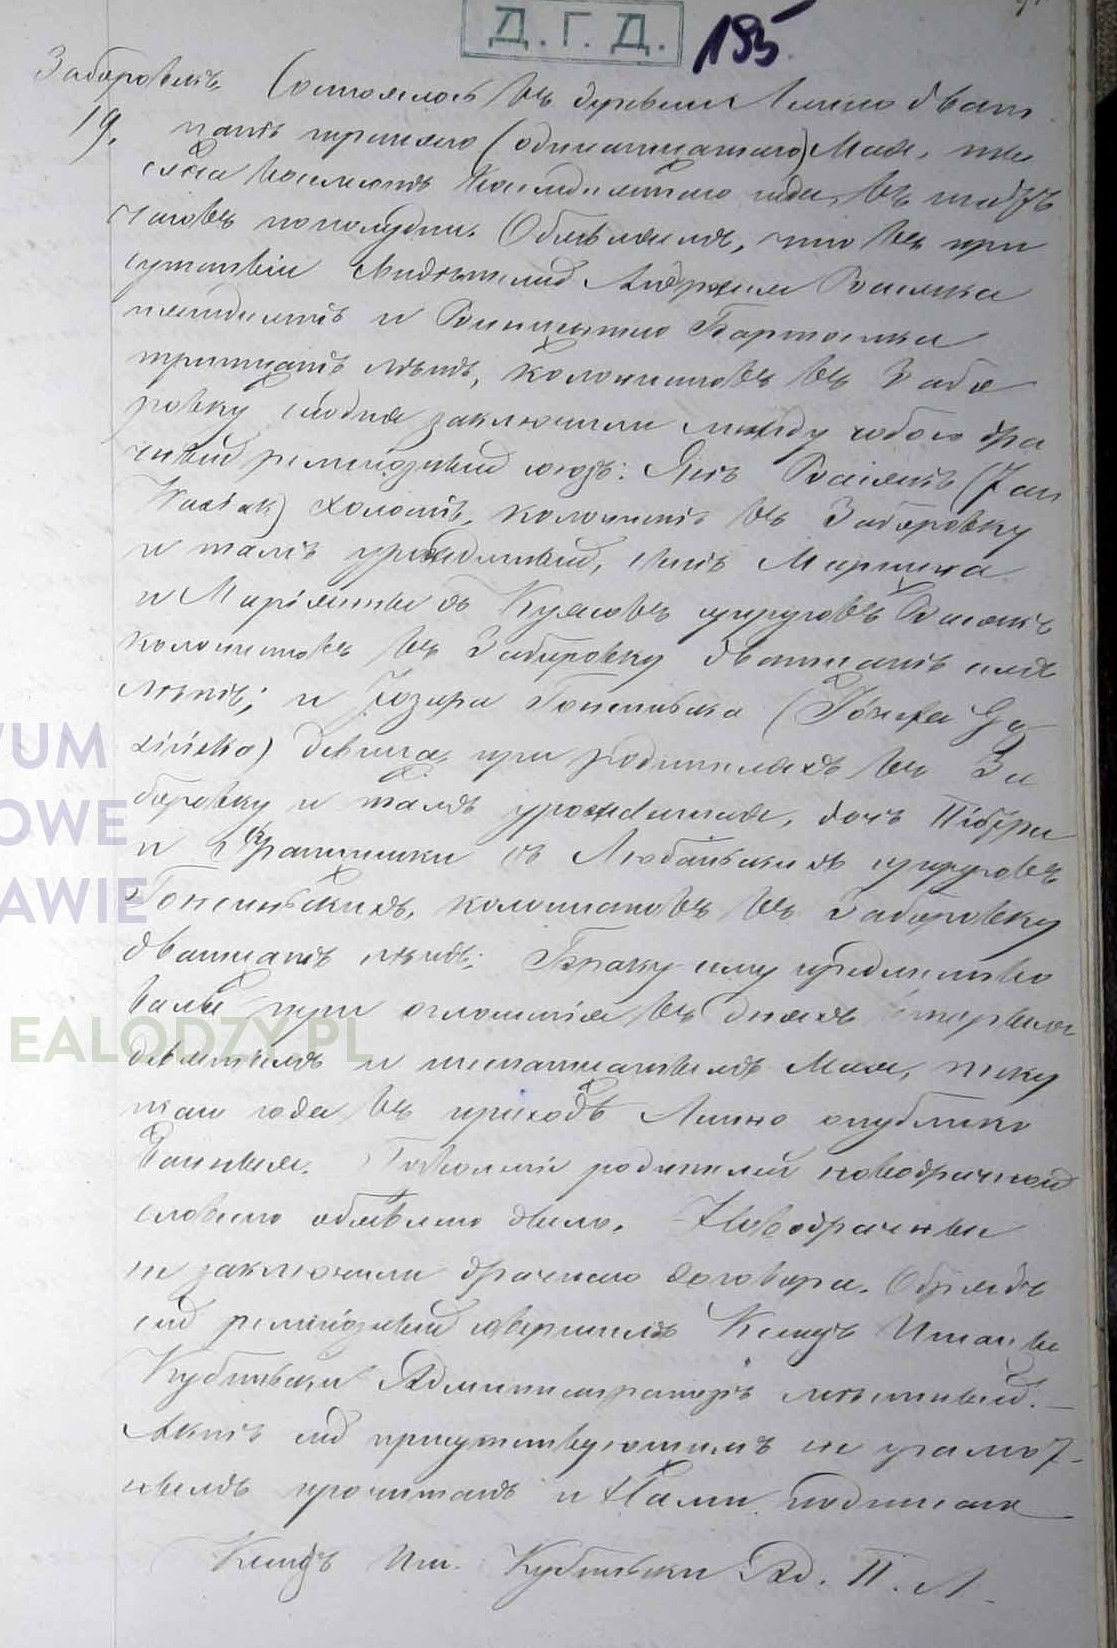 Д.Г.Д. 195
Заборовекъ Состоялось въ деревни Липно двад
19. цать третяго (одинатцатаго) Мая, ты
сяча восемьсотъ восемдесятаго года, въ
часовъ пополудни. Объявляемъ, что въ при
сутствіи свидѣтелей Андржея Васяка
пятидесяти и Винцентаго Бартосяка
тритцать лѣтъ, колонистовъ въ Забо
ровку сегодня заключили между собою бра
чный религіозный союзъ: Янъ Васякъ (Jan
Wasiak) холостъ, колонистъ въ Заборовку
и тамъ урожденный, сынъ Марцина
и Маріянны съ супруговъ Васякъ
колонистовъ въ Заборовку двадцать
лѣтъ; и Юзефа Гонсинська (Józefa Gą
sińska) девица, при родителяхъ въ За
боровку и тамъ урожденная, дочь
и Францишки съ супруговъ
Гонсинскихъ, колонистовъ въ Заборовку
двадцать лѣтъ; Браку сему предшество
вали три оглошенія въ дняхъ второмъ
девятымъ и шестнадцатымъ Мая, теку
щаго года въ приходѣ Липно опублико
ванныя. Позволеніе родителей новобрачной
словесно объявлено было. Новобрачные
не заключили брачнаго договора. Обрядъ
сей религіозный совершилъ Ксендзъ Игнацы
Кубинськи Администраторъ мѣстный. —
Актъ сей присутствующимъ не грамот-
нымъ прочитанъ и Нами подписанъ
Ксендзъ Иг. Кубинськи Ад. П. Л.
WUM
OWE
AWIE
EALODZY.PL